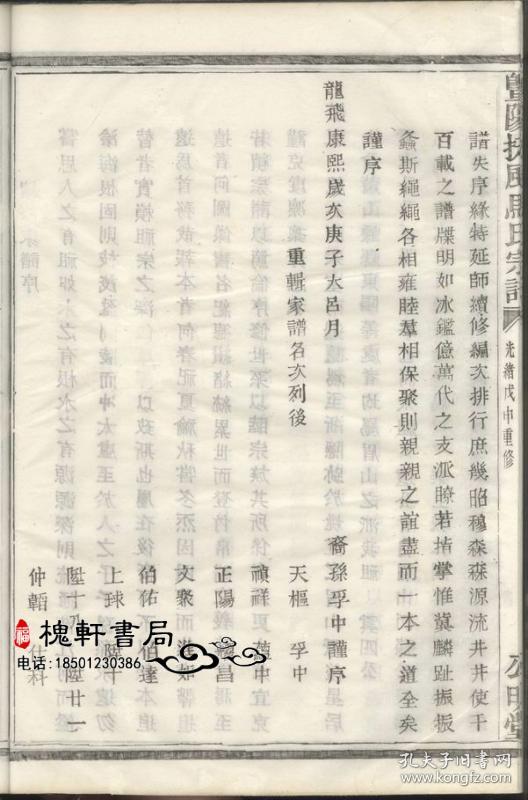 暨陽扶風馬氏宗譜
光緒戊申重修
譜失序緣特延師續修編次排行庶幾昭穆森森源流井井使千
百載之譜牒明如冰鑑億萬代之支派瞭若指掌惟冀麟趾振振
螽斯繩繩各相雍睦羣相保聚則親親之誼盡而一本之道全矣
謹序
龍飛康熙歲次庚子大呂月
裔孫孚中謹序
重輯家譜名次列後
天樞 孚中
禎祥 蘊中 宜克
正陽
文衆
伯佑 伯達
上球 陞十
陞十九 陞廿一
仲韜
槐軒書局
电话:18501230386
孔夫子旧书网
www.kongfz.com